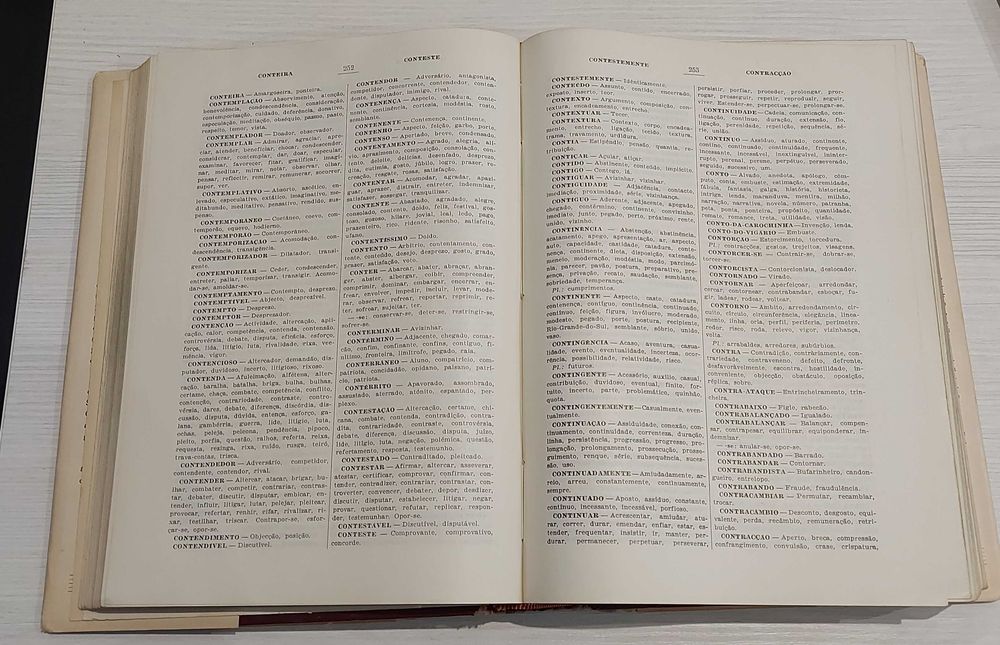 CONTEIRA
252
CONTESTE
CONTEIRA — Amargoseira, ponteira.
CONTEMPLAÇÃO — Absorvimento, atenção,
benevolência, condescendência, consideração,
contemporização, cuidado, deferência, donativo,
especulação, meditação, obséquio, pasmo, pasto,
respeito, temor, vista.
CONTEMPLADOR — Doador, observador.
CONTEMPLAR — Admirar, agraciar, apre-
ciar, atender, beneficiar, choear, condescender,
considerar, contemplar, dar, doar, especular,
examinar, favorecer, fitar, gratificar, imagi-
nar, meditar, mirar, notar, observar, olhar,
pensar, reflectir, remirar, remunerar, socorrer,
supor, ver.
CONTEMPLATIVO — Absorto, ascético, en-
levado, especulativo, extático, imaginativo, me-
ditabundo, meditativo, pensativo, rendido, sus-
penso.
CONTEMPORÂNEO — Coetâneo, coevo, con-
temporão, equevo, hodierno.
CONTEMPORÃO — Contemporâneo.
CONTEMPORIZAÇÃO — Acomodação, con-
descendência, transigência.
CONTEMPORIZADOR — Dilatador, transi-
gente.
CONTEMPORIZAR — Ceder, condescender,
entreter, paliar, temporizar, transigir. Acomo-
dar-se, amoldar-se.
CONTEMPTAMENTO — Contempto, desprezo.
CONTEMPTÍVEL — Abjecto, desprezível.
CONTEMPTO — Desprezo.
CONTEMPTOR — Desprezador.
CONTENÇÃO — Actividade, altercação, apli-
cação, calor, competência, contenda, contensão,
controvérsia, debate, disputa, eficácia, esforço,
força, lida, litígio, luta, rivalidade, rixa, vee-
mência, vigor.
CONTENCIOSO — Altercador, demandão, dis-
putador, duvidoso, incerto, litigioso, rixoso.
CONTENDA — Alterca­ção,
cação, baralha, batalha, briga, bulha, bulhas,
certame, chaça, combate, competência, conflito,
contenção, contrariedade, contraste, contro-
vérsia, dares, debate, diferença, discórdia, dis-
cussão, disputa, dúvida, entença, esforço, ga-
lana, gambérria, guerra, lide, litígio, luta,
ochas, peleja, peleona, pendência, pipoco,
pleito, porfia, questão, ralhos, referta, reixa,
requesta, rezinga, rixa, ruído, rusga, teiró,
trava-contas, trisca.
CONTENDEDOR — Adversário, competidor,
contendente, contendor, rival.
CONTENDER — Altercar, atacar, brigar, bu-
lhar, combater, competir, contrariar, contras-
tar, debater, discutir, disputar, embicar, en-
tender, influir, litigar, lutar, pelejar, pleitear,
provocar, refertar, renhir, rifar, rivalizar, ri-
xar, testilhar, triscar. Contrapor-se, esfor-
çar-se, opor-se.
CONTENDIMENTO — Objecção, posição.
CONTENDIVEL — Discutível.
CONTENDOR — Adversário, antagonista,
competidor, concorrente, contendedor, conten-
dente, disputador, inimigo, rival.
CONTENENÇA — Aspecto, catadura, conte-
nente, continência, cortesia, modéstia, rosto,
semblante.
CONTENENTE — Contenença, continente.
CONTENHO — Aspecto, feição, garbo, porte.
CONTENSO — Apertado, breve, condensado.
CONTENTAMENTO — Agrado, alegria, alí-
vio, aprazimento, composição, consolação, con-
tento, deleite, delícias, desenfado, desprezo,
dita, eutimia, gosto, júbilo, logro, prazer, re-
creação, resgate, rosas, satisfação.
CONTENTAR — Acomodar, agradar, apazi-
guar, aprazer, distrair, entreter, indemnizar,
satisfazer, sossegar, tranquilizar.
CONTENTE — Abastado, agradado, alegre,
consolado, contento, doido, feliz, festivo, gos-
toso, gozoso, hílare, jovial, leal, ledo, pago,
prazenteiro, rico, ridente, risonho, satisfeito,
ufano.
CONTENTÍSSIMO — Doido.
CONTENTO — Arbítrio, contentamento, con-
tente, conteúdo, desejo, desprezo, gosto, grado,
prazer, satisfação, voto.
CONTER — Abarcar, abater, abraçar, abran-
ger, abster, albergar, coibir, compreender,
comprimir, dominar, embargar, encerrar, en-
frear, envolver, impedir, incluir, levar, mode-
rar, observar, refrear, reportar, reprimir, re-
ter, sofrear, sujeitar, ter.
— -se: conservar-se, deter-se, restringir-se,
sofrer-se.
CONTERMINAR — Avizinhar.
CONTÉRMINO — Adjacente, chegado, comar-
cão, confim, confinante, confins, contíguo, fi-
nítimo, fronteira, limítrofe, pegado, raia.
CONTERRÂNEO — Aluno, compatrício, com-
patriota, concidadão, opidano, paisano, patrí-
cio, patriota.
CONTÉRRITO — Apavorado, assombrado,
assustado, aterrado, atónito, espantado, per-
plexo.
CONTESTAÇÃO — Altercação, certame, chi-
cana, combate, contenda, contradição, contra-
dita, contrariedade, contraste, controvérsia,
debate, diferença, discussão, disputa, juízo,
lide, litígio, luta, negação, polémica, questão,
refertamento, resposta, testemunho.
CONTESTADO — Contraditado, pleiteado.
CONTESTAR — Afirmar, altercar, asseverar,
atestar, certificar, comprovar, confirmar, con-
tender, contradizer, contrariar, contrastar, con-
troverter, convencer, debater, depor, desdizer,
discutir, disputar, estabelecer, litigar, negar,
provar, questionar, refutar, replicar, respon-
der, testemunhar. Opor-se.
CONTESTÁVEL — Discutível, disputável.
CONTESTE — Comprovante, comprovativo,
concorde.
CONTESTEMENTE
253
CONTRACÇÃO
CONTESTEMENTE — Idênticamente.
CONTEÚDO — Assunto, contido, encerrado,
exposto, inserto, teor.
CONTEXTO — Argumento, composição, con-
textura, encadeamento, enrecho.
CONTEXTUAR — Tecer.
CONTEXTURA — Contexto, corpo, encadea-
mento, entrecho, ligação, tecido, textura,
trama, tratamento, urdidura.
CONTIA — Estipêndio, pensão, quantia, re-
tribuição.
CONTIÇAR — Aguilar, atiçar.
CONTIDO — Abstinente, conteúdo, implícito.
CONTIGO — Contigo, lá.
CONTIGUAR — Avizinhar, vizinhar.
CONTIGUIDADE — Adjacência, contacto,
imediação, proximidade, série, vizinhança.
CONTÍGUO — Aderente, adjacente, apegado,
chegado, contérmino, continente, convizinho,
imediato, junto, pegado, perto, próximo, rente,
unido, vizinho.
CONTINÊNCIA — Abstenção, abstinência,
acatamento, apego, apresentação, ar, aspecto,
auto, capacidade, castidade, catadura, conte-
nença, continente, dieta, disposição, extensão,
meneio, moderação, modéstia, modo, parcimó-
nia, parecer, pavão, postura, preparativo, pre-
sença, temperança, recato, saudação, semblante,
sobriedade, temperança.
Pl.: cumprimentos.
CONTINENTE — Aspecto, casto, catadura,
contenença, contíguo, continência, contido, con-
tínuo, feição, figura, invólucro, moderado,
modesto, pegado, porte, postura, recipiente,
Rio-Grande-do-Sul, semblante, sóbrio, unido,
vaso.
CONTINGÊNCIA — Acaso, aventura, casua-
lidade, evento, eventualidade, incerteza, ocor-
rência, possibilidade, relatividade, risco.
Pl.: futuros.
CONTINGENTE — Acessório, auxílio, casual,
contribuição, duvidoso, eventual, finito, for-
tuito, incerto, parte, problemático, quinhão,
quota.
CONTINGENTEMENTE — Casualmente, even-
tualmente.
CONTINUAÇÃO — Assiduidade, conexão, con-
tinuamento, continuidade, correnteza, duração,
linha, persistência, progressão, progresso, pro-
longação, prolongamento, prosecução, prosse-
guimento, renque, série, subsequência, suces-
são, uso.
CONTINUADAMENTE — Amiudadamente, ar-
reio, arreu, constantemente, continuamente,
sempre.
CONTINUADO — Aposto, assíduo, constante,
contínuo, incessante, incessável, porfioso.
CONTINUAR — Acrescentar, amiudar, atu-
rar, correr, durar, emendar, enfiar, estar, es-
tender, frequentar, insistir, ir, manter, per-
durar, permanecer, perpetuar, perseverar,
persistir, porfiar, proceder, prolongar, pror-
rogar, prosseguir, repetir, reproduzir, seguir,
viver. Estender-se, perpetuar-se, prolongar-se.
CONTINUIDADE — Cadeia, comunicação, con-
tinuação, contínuo, duração, extensão, fio,
ligação, perenidade, repetição, sequência, sé-
rie, união.
CONTÍNUO — Assíduo, aturado, continente,
contino, continuado, continuidade, frequente,
incessante, incessável, inextinguível, ininter-
rupto, perenal, perene, perpétuo, perseverado,
seguido, sucessivo, um.
CONTO — Alvado, anedota, apólogo, côm-
puto, conta, embuste, estimação, extremidade,
fábula, fantasia, galga, história, historieta,
intriga, lenda, maranduva, mentira, milhão,
narração, narrativa, novela, número, patranha,
peta, ponta, ponteira, propósito, quantidade,
remate, romance, treta, utilidade, visão.
CONTO-DA-CAROCHINHA — Invenção, lenda.
CONTO-DO-VIGÁRIO — Embuste.
CONTORÇÃO — Estorcimento, torcedura.
Pl.: contracções, gestos, trejeitos, visagens.
CONTORCER-SE — Contrair-se, dobrar-se,
torcer-se.
CONTORCISTA — Contorcionista, deslocador.
CONTORNADO — Virado.
CONTORNAR — Aperfeiçoar, arredondar,
cercar, contornear, contrabandar, esboçar, fu-
gir, ladear, rodear, voltear.
CONTORNO — Âmbito, arredondamento, cir-
cuito, círculo, circunferência, elegância, linea-
mento, linha, oria, perfil, periferia, perímetro,
redor, risco, roda, relevo, vigor, vizinhança,
volta.
Pl.: arrabaldes, arredores, subúrbios.
CONTRA — Contradição, contràriamente, con-
trariedade, contraveneno, defeito, defronte,
desfavoràvelmente, escontra, hostilidade, in-
conveniente, objecção, obstáculo, oposição,
réplica, sobre.
CONTRA-ATAQUE — Entrincheiramento, trin-
cheira.
CONTRABAIXO — Figle, rabecão.
CONTRABALANÇADO — Igualado.
CONTRABALANÇAR — Balançar, compen-
sar, contrapesar, equilibrar, equiponderar, in-
demnizar.
— -se: anular-se, opor-se.
CONTRABANDADO — Barrado.
CONTRABANDAR — Contornar.
CONTRABANDISTA — Bufarinheiro, candon-
gueiro, entrelopo.
CONTRABANDO — Fraude, fraudulência.
CONTRACAMBIAR — Permutar, recambiar,
trocar.
CONTRACÂMBIO — Desconto, desgosto, equi-
valente, perda, recâmbio, remuneração, retri-
buição.
CONTRACÇÃO — Aperto, breca, compressão,
confrangimento, convulsão, crase, crispatura,